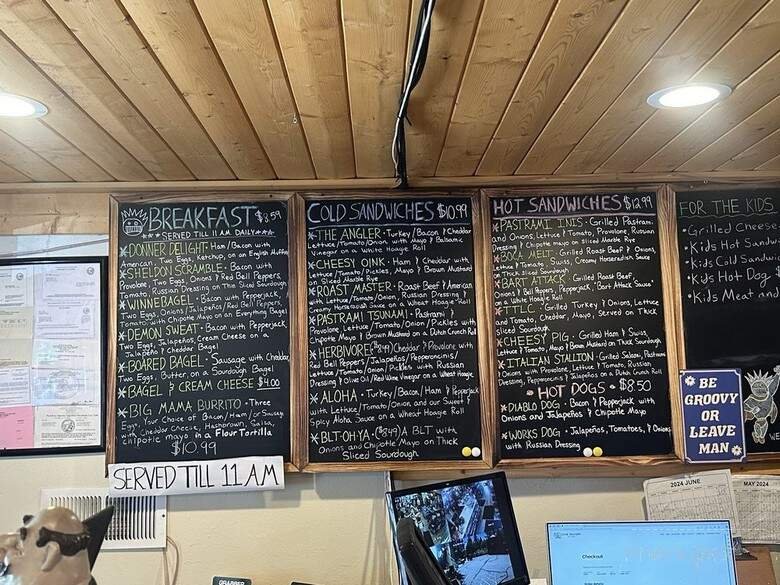 BREAKFAST $8.59
*** SERVED TILL 11 AM DAILY ***
*DONNER DELIGHT · Ham/Bacon with
American, Two Eggs, Ketchup, on an English Muffin
*SHELDON SCRAMBLE · Bacon with
Provolone, Two Eggs, Onions, Red Bell Peppers,
Tomato, Russian Dressing on Thic Sliced Sourdough
*WINNEBAGEL · Bacon with Pepperjack,
Two Eggs, Onions/Jalapeños/Red Bell Peppers
Tomato, with Chipotle Mayo on an Everything Bagel
*DEMON SWEAT · Bacon with Pepperjack,
Two Eggs, Jalapeños, Cream Cheese on a
Jalapeño & Cheddar Bagel
*BOARED BAGEL · Sausage with Cheddar,
Two Eggs, Butter on a Sourdough Bagel
*BAGEL & CREAM CHEESE $4.00
*BIG MAMA BURRITO · Three
Eggs, Your Choice of Bacon/Ham/or Sausage
with Cheddar Cheese, Hashbrown, Salsa,
Chilpotle mayo in a Flour Tortilla
$10.99
SERVED TILL 11 AM
COLD SANDWICHES $10.99
*THE ANGLER · Turkey/Bacon & Cheddar
Lettuce/Tomato/Onion with Mayo & Balsamic
Vinegar on a Wheat Hoagie Roll
*CHEESY OINK · Ham & Cheddar with
Lettuce/Tomato/Pickles, Mayo & Brown Mustard
on Sliced Marble Rye
*ROAST MASTER · Roast Beef & American
with Lettuce/Tomato/Onion, Russian Dressing &
Creamy Horseradish Sauce on a Wheat Hoagie Roll
*PASTRAMI TSUNAMI · Pastrami &
Provolone Lettuce/Tomato/Onion/Pickles with
Chipotle Mayo & Brown Mustard on a Dutch Crunch Roll
*HERBIVORE ($8.49) Cheddar & Provolone with
Red Bell Peppers/Jalapeños/Pepperoncinis/
Lettuce/Tomato/Onion/Pickles with Russian
Dressing & Olive Oil/Red Wine Vinegar on a Wheat Hoagie
*ALOHA · Turkey/Bacon/Ham & Pepperjack
with Lettuce/Tomato/Onion, and our Sweet &
Spicy Aloha Sauce on a Wheat Hoagie Roll
*BLT-OH-YA · ($8.49) A BLT with
Onions and Chipotle Mayo on Thick
Sliced Sourdough
HOT SANDWICHES $12.99
*PASTRAMI INIS · Grilled Pastrami
and Onions, Lettuce & Tomato, Provolone, Russian
Dressing & Chipotle mayo on sliced Marble Rye
*BOCA MELT · Grilled Roast Beef & Onions,
Lettuce & Tomato, Swiss, Creamy Horseradish Sauce
Thick Sliced Sourdough
*BART ATTACK · Grilled Roast Beef,
Onions, & Bell Peppers, Pepperjack, "Bart Attack Sauce"
on a White Hoagie Roll
*TTLC · Grilled Turkey & Onions, Lettuce
and Tomato, Cheddar, Mayo, Served on Thick
Sliced Sourdough
*CHEESY PIG · Grilled Ham & Swiss,
Lettuce & Tomato, Mayo & Brown Mustard on Thick Sourdough
*ITALIAN STALLION · Grilled Salami, Pastrami
with Provolone, Lettuce & Tomato, Russian
Dressing, Pepperoncinis & Jalapeños on a Dutch Crunch Roll
· HOT DOGS · $8.50
*DIABLO DOG · Bacon & Pepperjack with
Onions and Jalapeños & Chipotle Mayo
*WORKS DOG · Jalapeños, Tomatoes, & Onions
with Russian Dressing
FOR THE KIDS
·Grilled Cheese
·Kids Hot Sandw
·Kids Cold Sandwic
·Kids Hot Dog
·Kids Meat and
BE
GROOVY
OR
LEAVE
MAN
2024 JUNE
MAY 2024
Checkout